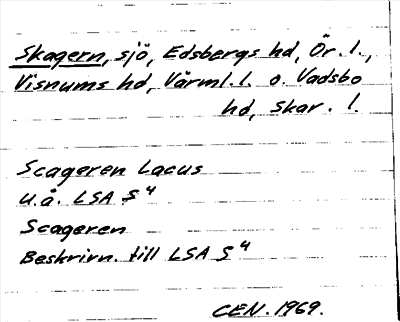 Skagern, sjö, Edsbergs hd, Ör. l.,
Visnums hd, Värml. l. o. Vadsbo
hd, Skar. l.
Scageren Lacus
u.å. LSA S⁴
Scageren
Beskrivn. till LSA S⁴
CEN. 1969.